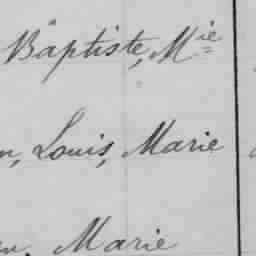 Baptiste, Mie
Louis, Marie
Marie